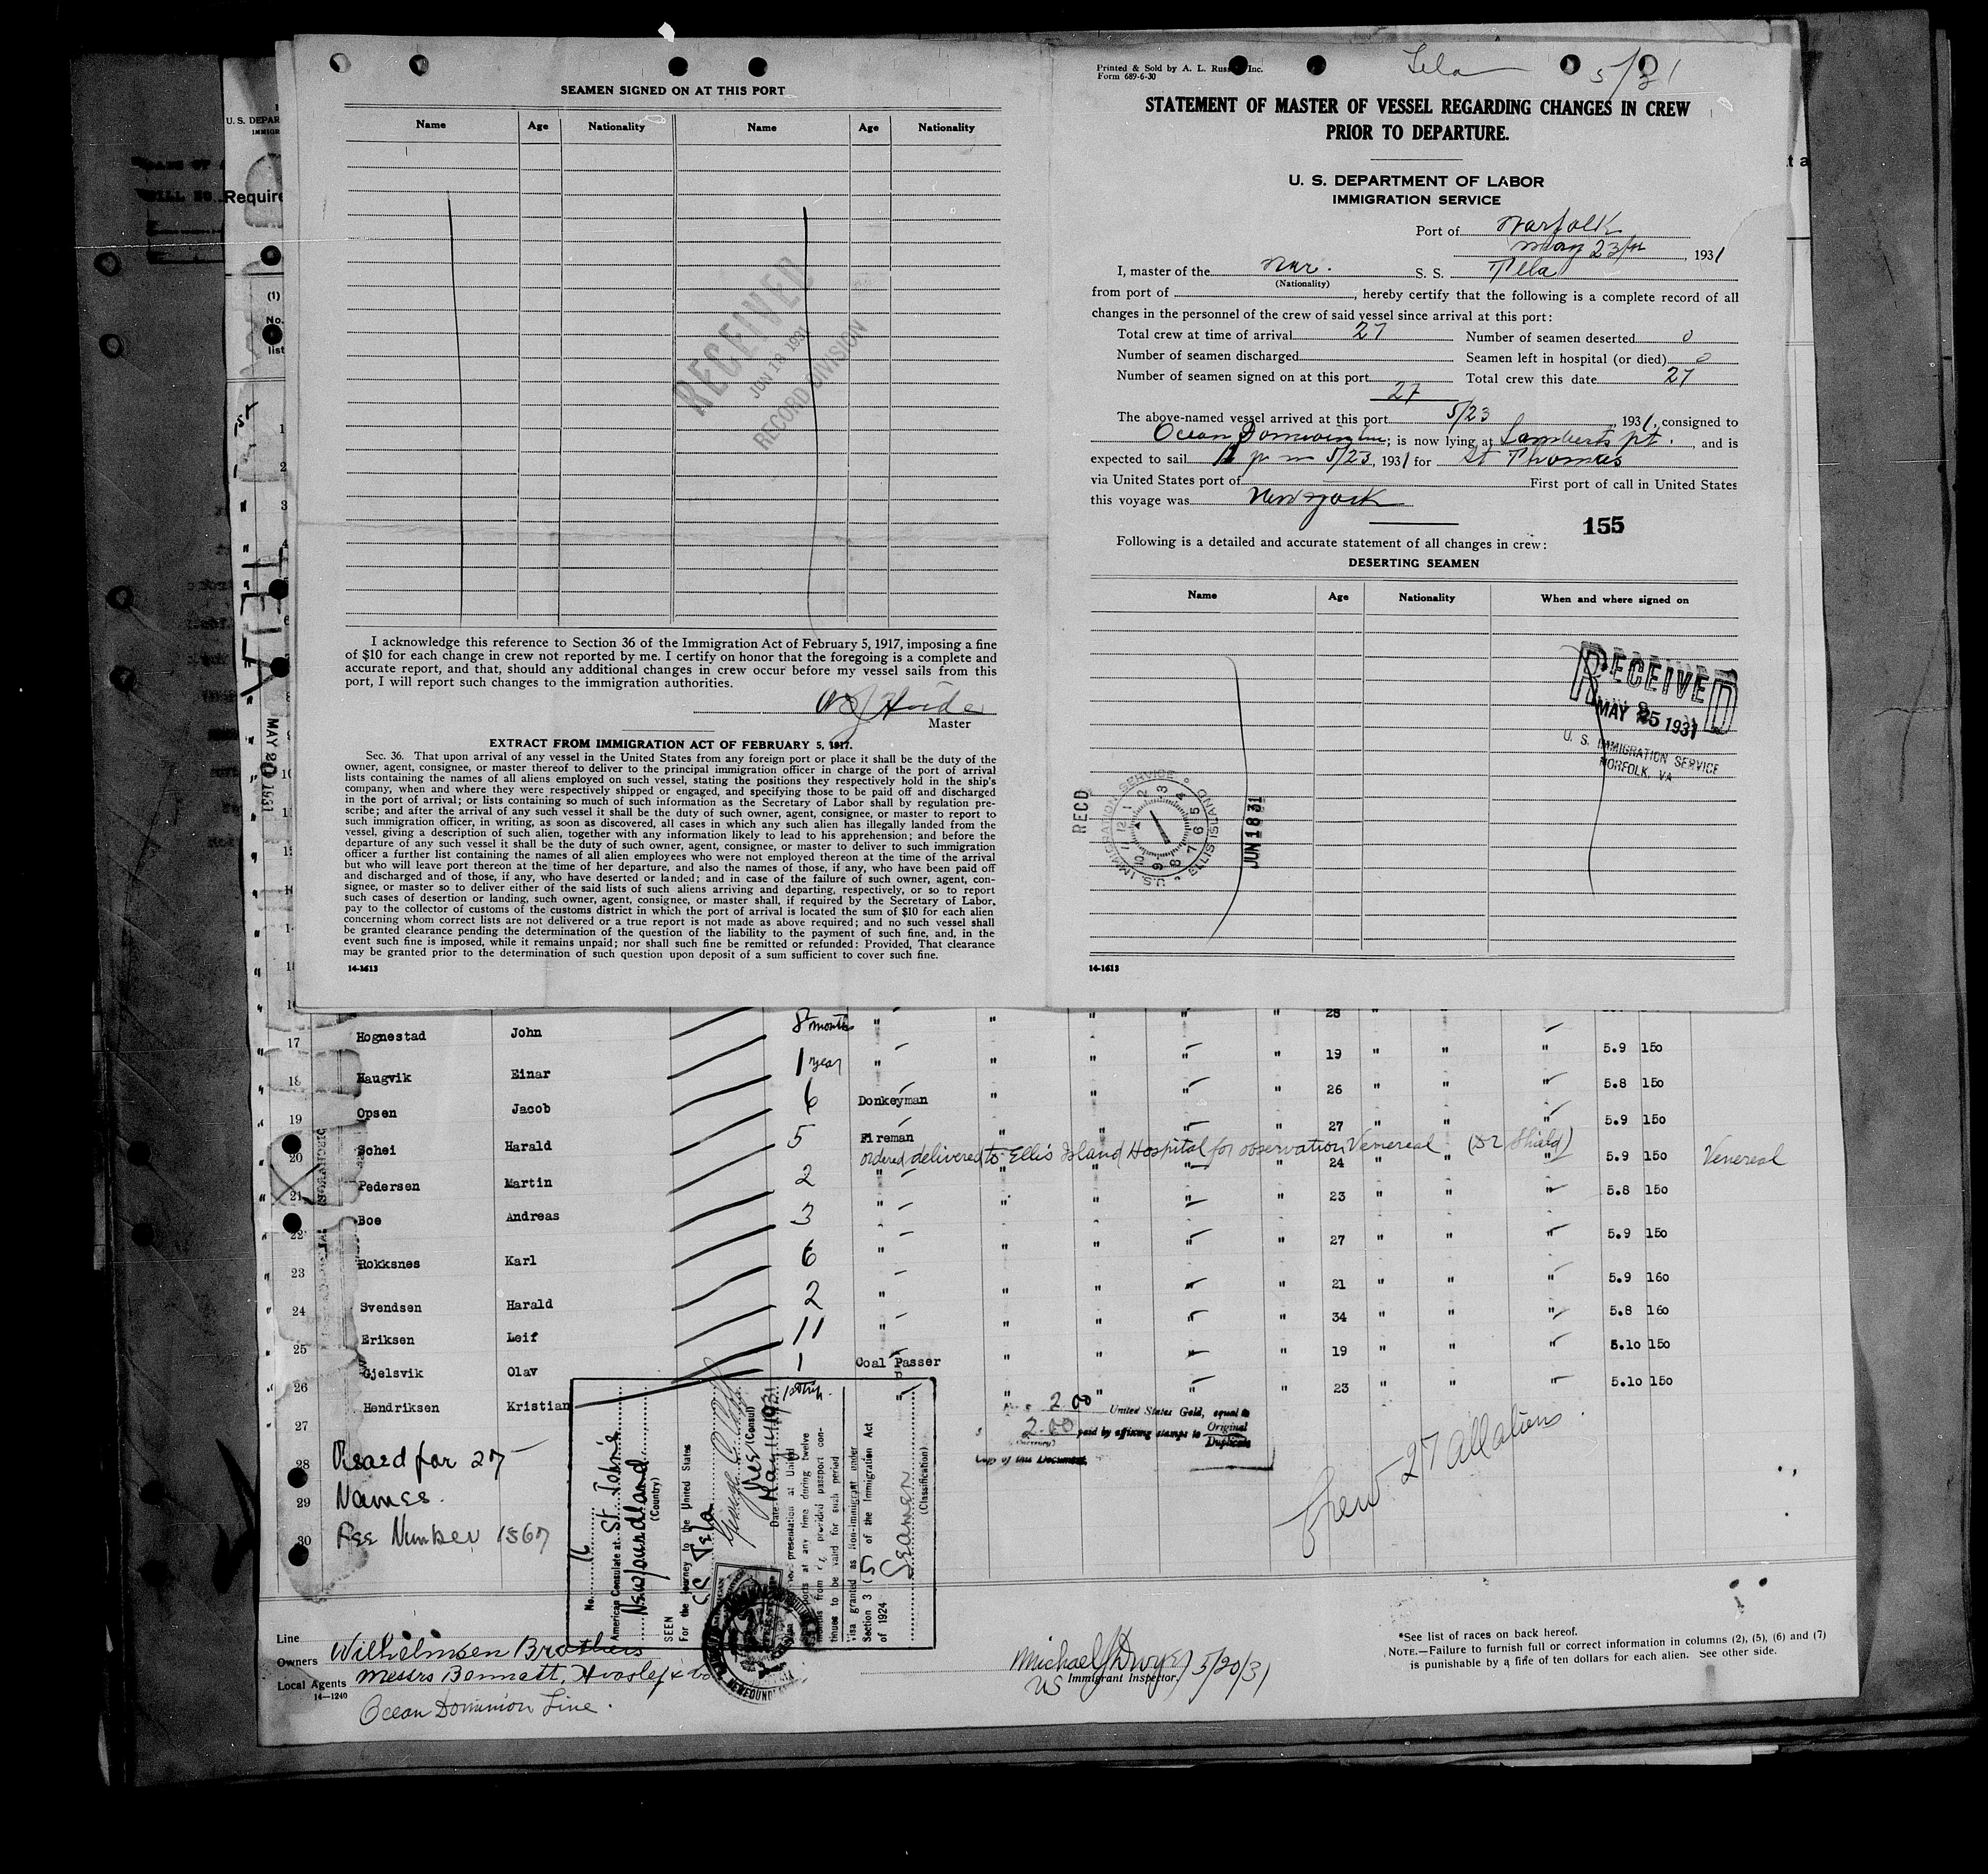 SEAMEN SIGNED ON AT THIS PORT
Name Age Nationality Name Age Nationality
RECEIVED
JUN 18 1931
RECORD DIVISION
I acknowledge this reference to Section 36 of the Immigration Act of February 5, 1917, imposing a fine
of $10 for each change in crew not reported by me. I certify on honor that the foregoing is a complete and
accurate report, and that, should any additional changes in crew occur before my vessel sails from this
port, I will report such changes to the immigration authorities.
Master
EXTRACT FROM IMMIGRATION ACT OF FEBRUARY 5, 1917.
Sec. 36. That upon arrival of any vessel in the United States from any foreign port or place it shall be the duty of the
owner, agent, consignee, or master thereof to deliver to the principal immigration officer in charge of the port of arrival
lists containing the names of all aliens employed on such vessel, stating the positions they respectively hold in the ship's
company, when and where they were respectively shipped or engaged, and specifying those to be paid off and discharged
in the port of arrival; or lists containing so much of such information as the Secretary of Labor shall by regulation pre-
scribe; and after the arrival of any such vessel it shall be the duty of such owner, agent, consignee, or master to report to
such immigration officer, in writing, as soon as discovered, all cases in which any such alien has illegally landed from the
vessel, giving a description of such alien, together with any information likely to lead to his apprehension; and before the
departure of any such vessel it shall be the duty of such owner, agent, consignee, or master to deliver to such immigration
officer a further list containing the names of all alien employees who were not employed thereon at the time of the arrival
but who will leave port thereon at the time of her departure, and also the names of those, if any, who have been paid off
and discharged and of those, if any, who have deserted or landed; and in case of the failure of such owner, agent, con-
signee, or master so to deliver either of the said lists of such aliens arriving and departing, respectively, or so to report
such cases of desertion or landing, such owner, agent, consignee, or master shall, if required by the Secretary of Labor,
pay to the collector of customs of the customs district in which the port of arrival is located the sum of $10 for each alien
concerning whom correct lists are not delivered or a true report is not made as above required; and no such vessel shall
be granted clearance pending the determination of the question of the liability to the payment of such fine, and, in the
event such fine is imposed, while it remains unpaid; nor shall such fine be remitted or refunded: Provided, That clearance
may be granted prior to the determination of such question upon deposit of a sum sufficient to cover such fine.
14-1613
Printed & Sold by A. L. Russ Inc.
Form 689-6-30
Tela 5/31
STATEMENT OF MASTER OF VESSEL REGARDING CHANGES IN CREW
PRIOR TO DEPARTURE.
U. S. DEPARTMENT OF LABOR
IMMIGRATION SERVICE
Port of Norfolk
May 23rd, 1931
I, master of the Nor. S. S. Tela
(Nationality)
from port of , hereby certify that the following is a complete record of all
changes in the personnel of the crew of said vessel since arrival at this port:
Total crew at time of arrival 27 Number of seamen deserted 0
Number of seamen discharged Seamen left in hospital (or died) 0
Number of seamen signed on at this port Total crew this date 27
27
The above-named vessel arrived at this port 5/23, 1931, consigned to
Ocean Dominion Line; is now lying at Lamberts pt., and is
expected to sail pm 5/23, 1931 for St Thomas
via United States port of First port of call in United States
this voyage was New York
155
Following is a detailed and accurate statement of all changes in crew:
DESERTING SEAMEN
Name Age Nationality When and where signed on
RECEIVED
MAY 25 1931
U. S. IMMIGRATION SERVICE
NORFOLK, VA
RECD
U.S. IMMIGRATION SERVICE ELLIS ISLAND
JUN 18 31
14-1613
U. S. DEPAR
IMMIGR
Require
(1)
No.
list
TELA
MAY 20 1931
28
17 Hognestad John 8 months " " " " " 19 " " " 5.9 150
18 Haugvik Einar 1 year " " " " " 26 " " " 5.8 150
19 Opsen Jacob 6 Donkeyman " " " " 27 " " " 5.9 150
20 Sohei Harald 5 Fireman " " " " 24 " " " 5.9 150 Venereal
ordered delivered to Ellis Island Hospital for observation Venereal (Dr Shield)
21 Pedersen Martin 2 " " " " " 23 " " " 5.8 150
22 Boe Andreas 3 " " " " " 27 " " " 5.9 150
23 Rokksnes Karl 6 " " " " " 21 " " " 5.9 160
24 Svendsen Harald 2 " " " " " 34 " " " 5.8 160
25 Eriksen Leif 11 " " " " " 19 " " " 5.10 150
26 Gjelsvik Olav 1 Coal Passer " " " " 23 " " " 5.10 150
27 Hendriksen Kristian 1st trip "
28 Visaed for 27
29 Names.
30 Fee Number 1567
No. 16
American Consulate at St. John's
Newfoundland
(Country)
SEEN
For the journey to the United States
SS Tela
Vice (Consul)
Date May 14 1931
Visa granted as Non-immigrant under
Section 3 (5) of the Immigration Act
of 1924
Seamen
(Classification)
2.00 United States Gold, equal to
$ 2.00 paid by affixing stamps to Original
(Currency) Duplicate
Copy of this Document.
Crew 27 all aliens.
Line
Owners Wilhelmsen Brothers
Local Agents Messrs Bennett, Hvoslef & Co
14-1240
Ocean Dominion Line.
Michael J Dwyer 5/20/31
US Immigrant Inspector.
*See list of races on back hereof.
NOTE.—Failure to furnish full or correct information in columns (2), (5), (6) and (7)
is punishable by a fine of ten dollars for each alien. See other side.